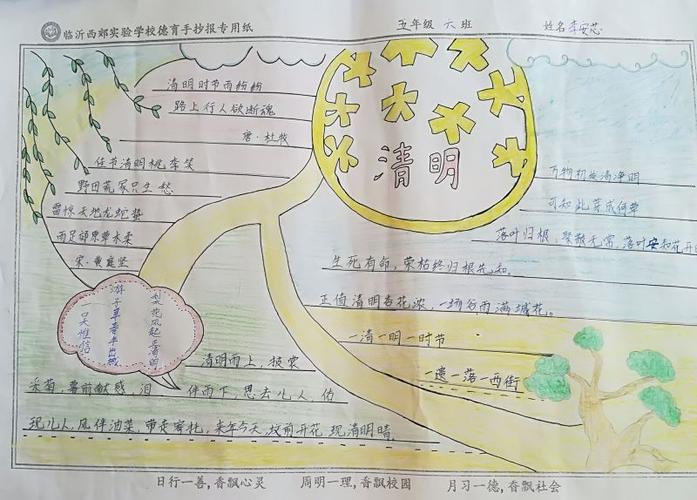 临沂西郊实验学校德育手抄报专用纸
五年级 六班
姓名 李安芯
清明
清明时节雨纷纷
路上行人欲断魂
唐·杜牧
佳节清明桃李笑
野田荒冢只生愁
雷惊天地龙蛇蛰
雨足郊原草木柔
宋·黄庭坚
梨花风起正清明
游子寻春半出城
吴惟信
万物初
清净明
可知此
落叶归根,聚散无常,落叶安知花开
生死有命,荣枯终归根花知.
正值清明杏花浓,一场谷雨满城花。
一清一明一时节
一遗一落一西街
清明雨上,
采菊,
泪
伴雨下,思去儿人,
现儿人,风伴油菜,
来年今天,坟前开花,现清明晴.
日行一善,香飘心灵
周明一理,香飘校园
月习一德,香飘社会